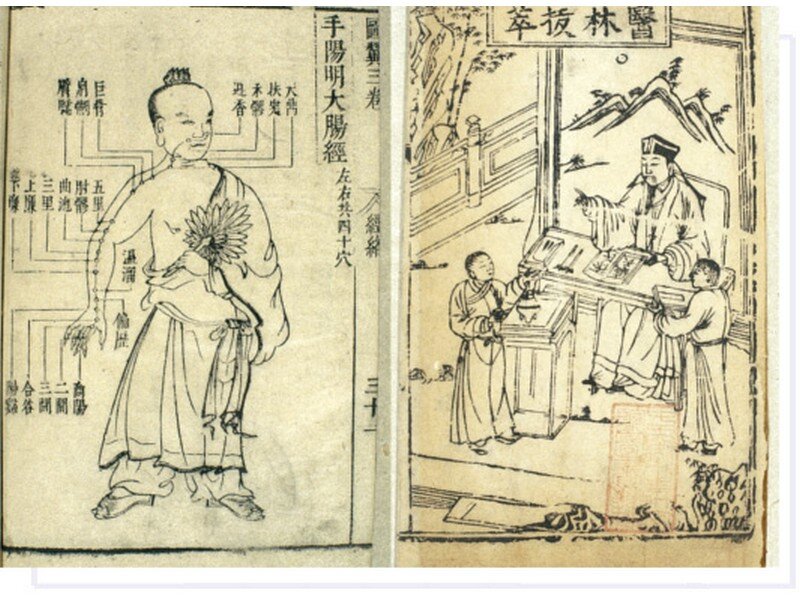 圖翼三卷
經絡
手陽明大腸經
左右共四十穴
天鼎
扶突
禾髎
迎香
巨骨
肩髃
臂臑
五里
肘髎
曲池
三里
上廉
下廉
溫溜
偏歷
商陽
二間
三間
合谷
陽谿
醫林拔萃